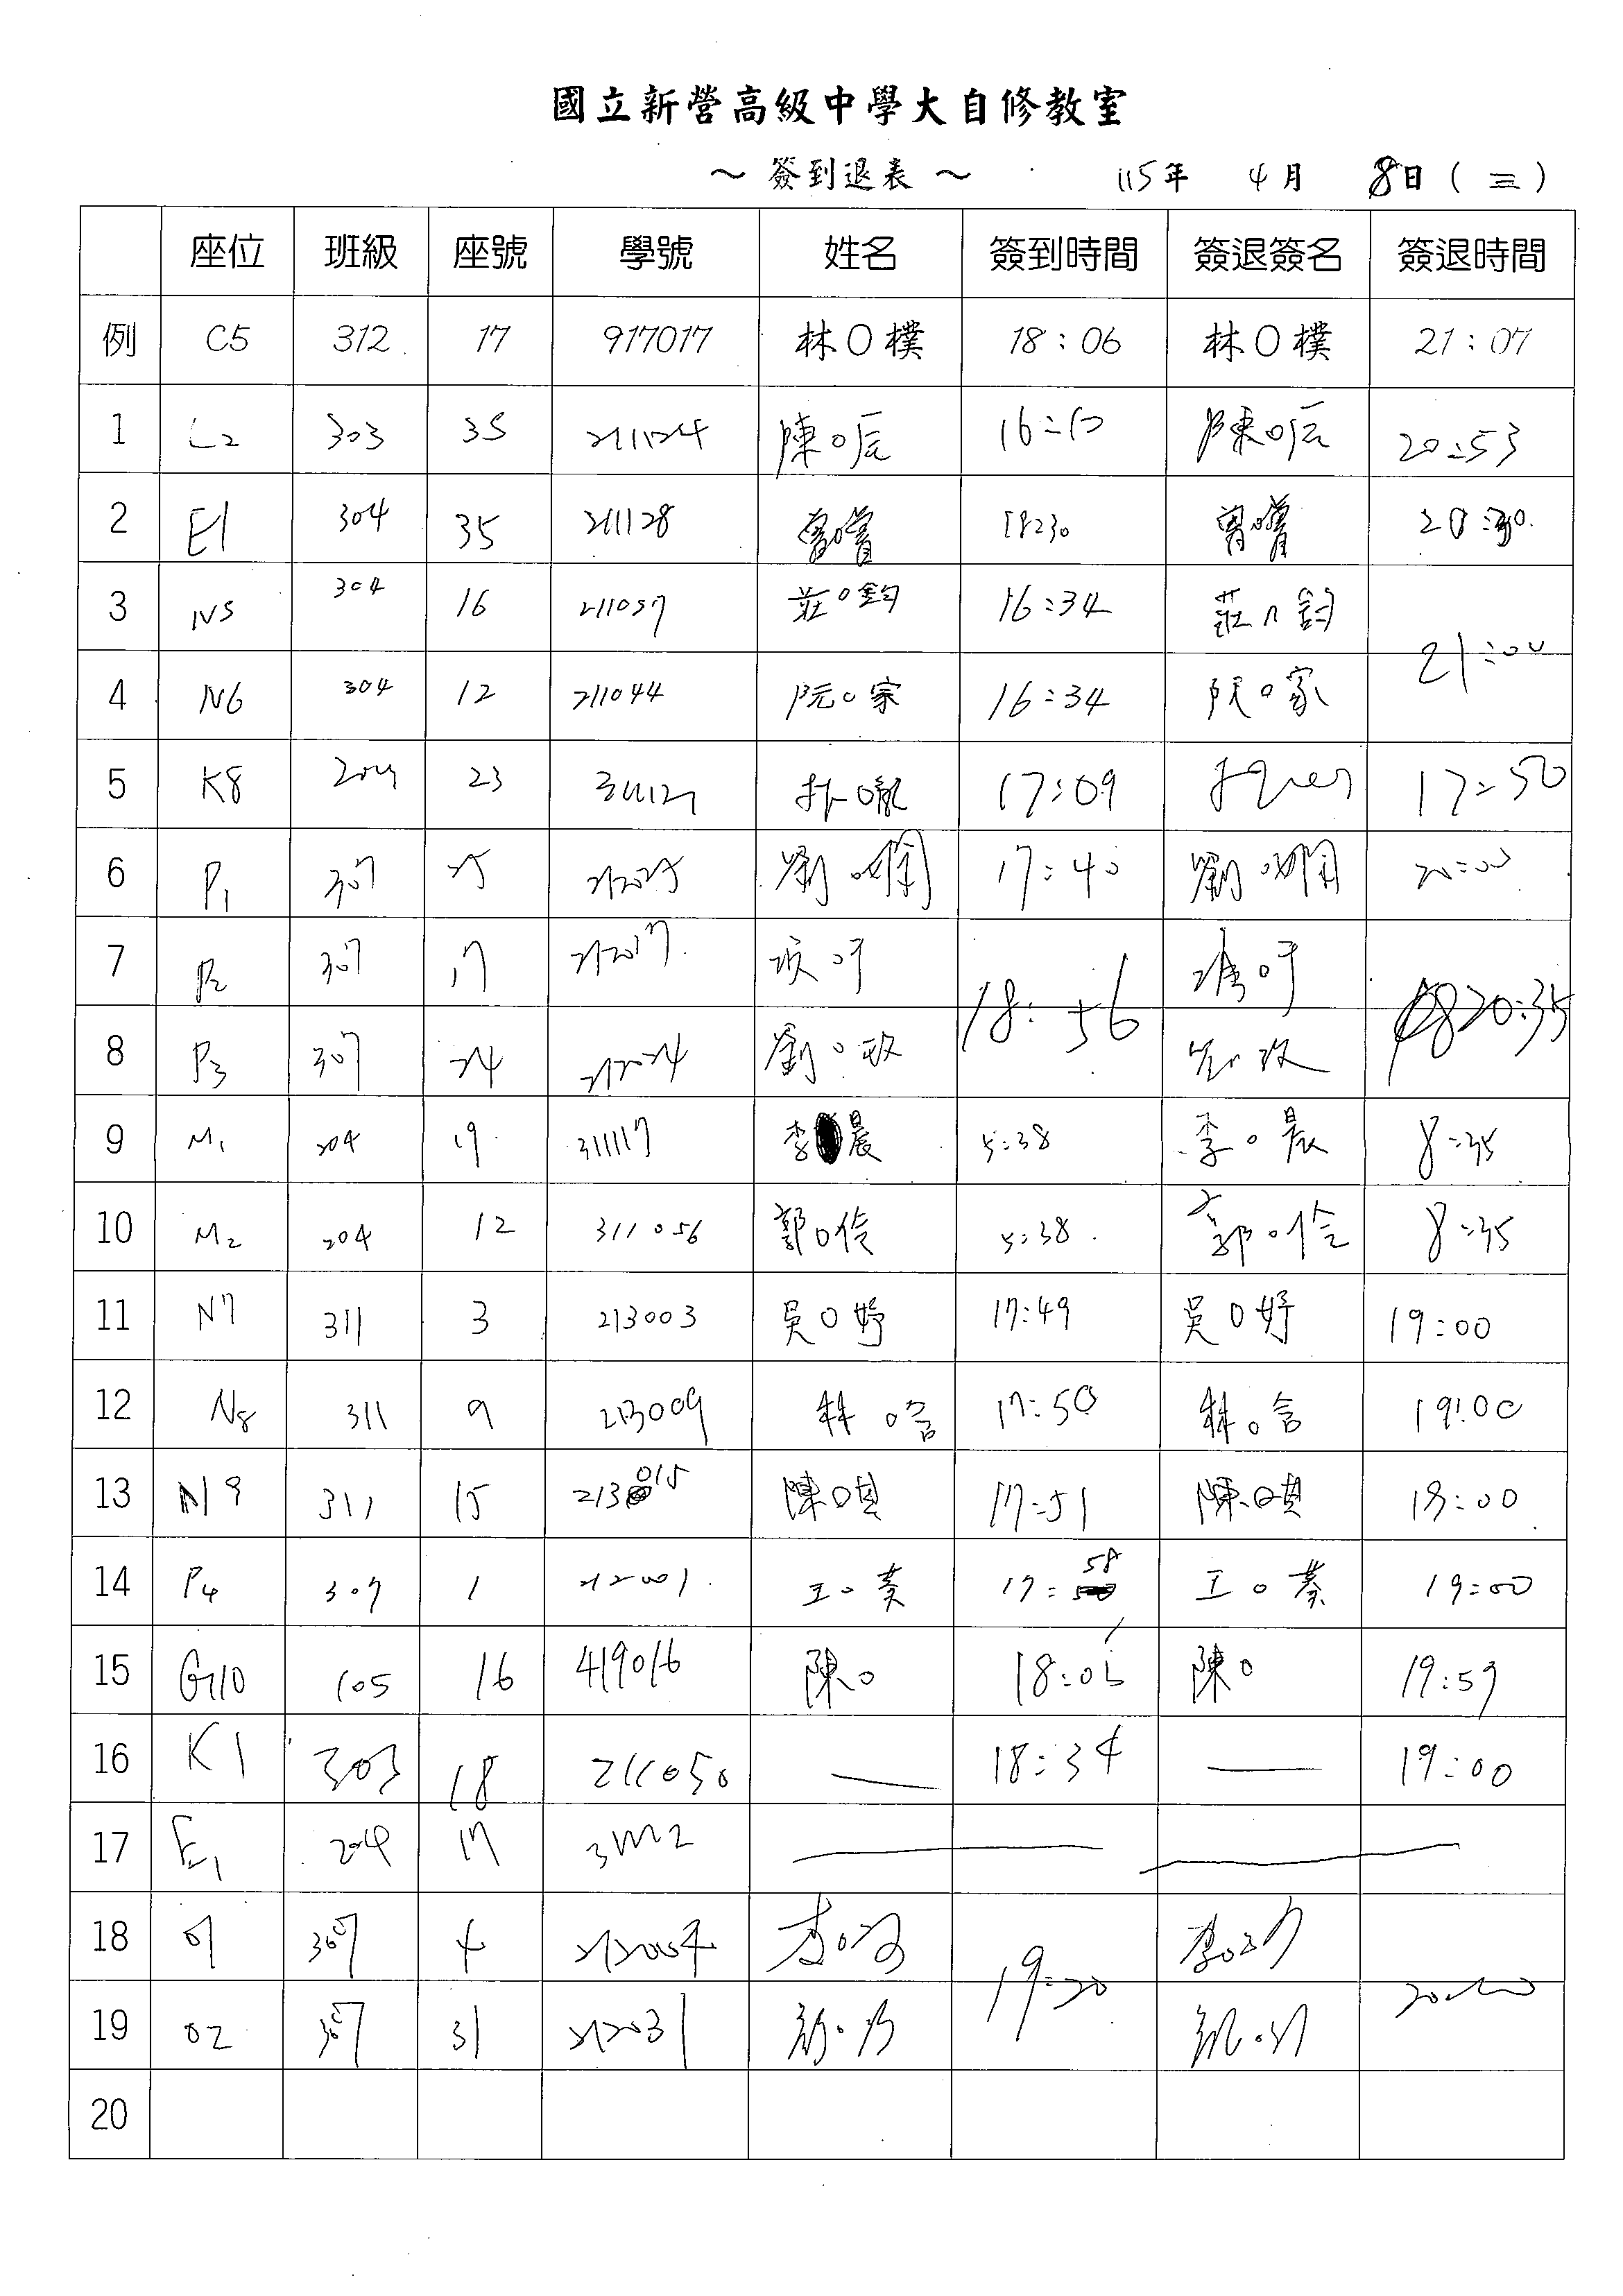 國立新營高級中學大自修教室
～ 簽到退表 ～ 115年 4月 8日 (三)
座位 班級 座號 學號 姓名 簽到時間 簽退簽名 簽退時間
例 C5 312 17 917017 林O樸 18:06 林O樸 21:07
1 L2 303 35 211124 陳O辰 陳O辰 20:53
2 E1 304 35 211128 18:30
3 N5 304 16 211057 莊O鈞 16:34 莊O鈞
21:00
4 N6 304 12 211044 阮O家 16:34 阮O家
5 K8 204 23 17:09 17:50
6 P1 307 25 212025 劉O 17:40 劉O 20:00
7 P2 307 17 212017
18:56 20:35
8 P3 307 24 212024 劉O政
9 M1 204 19 311117 李 晨 5:38 李O晨 8:35
10 M2 204 12 311056 郭O伶 5:38 郭O伶 8:35
11 N7 311 3 213003 吳O妤 17:49 吳O妤 19:00
12 N8 311 9 213009 林O含 17:50 林O含 19:00
13 N9 311 15 213015 陳O 17:51 陳O 19:00
14 P4 307 1 212001 王O蓁 17:58 王O蓁 19:00
15 G110 105 16 419016 陳O 陳O 19:59
16 K1 303 18 211050 — 18:34 — 19:00
17 E1 204 17
18 O1 307 4 212004 李O
19:20 20:00
19 O2 307 31 212031
20